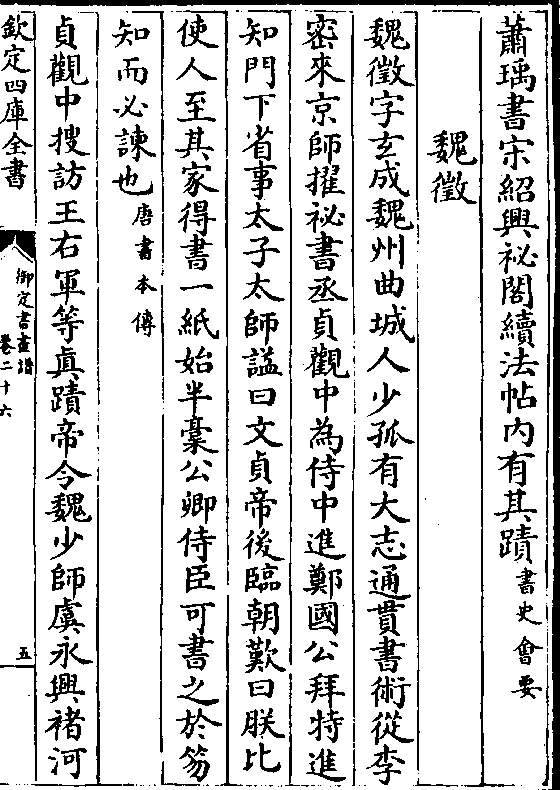 蕭瑀書宋紹興祕閣續法帖内有其蹟書史會要
魏徵
魏徵字玄成魏州曲城人少孤有大志通貫書術從李
密來京師擢祕書丞貞觀中為侍中進鄭國公拜特進
知門下省事太子太師謚曰文貞帝後臨朝歎曰朕比
使人至其家得書一紙始半藁公卿侍臣可書之於笏
知而必諫也唐書本傳
貞觀中搜訪王右軍等眞蹟帝令魏少師虞永興褚河
欽定四庫全書
御定書畫譜
卷二十六
五